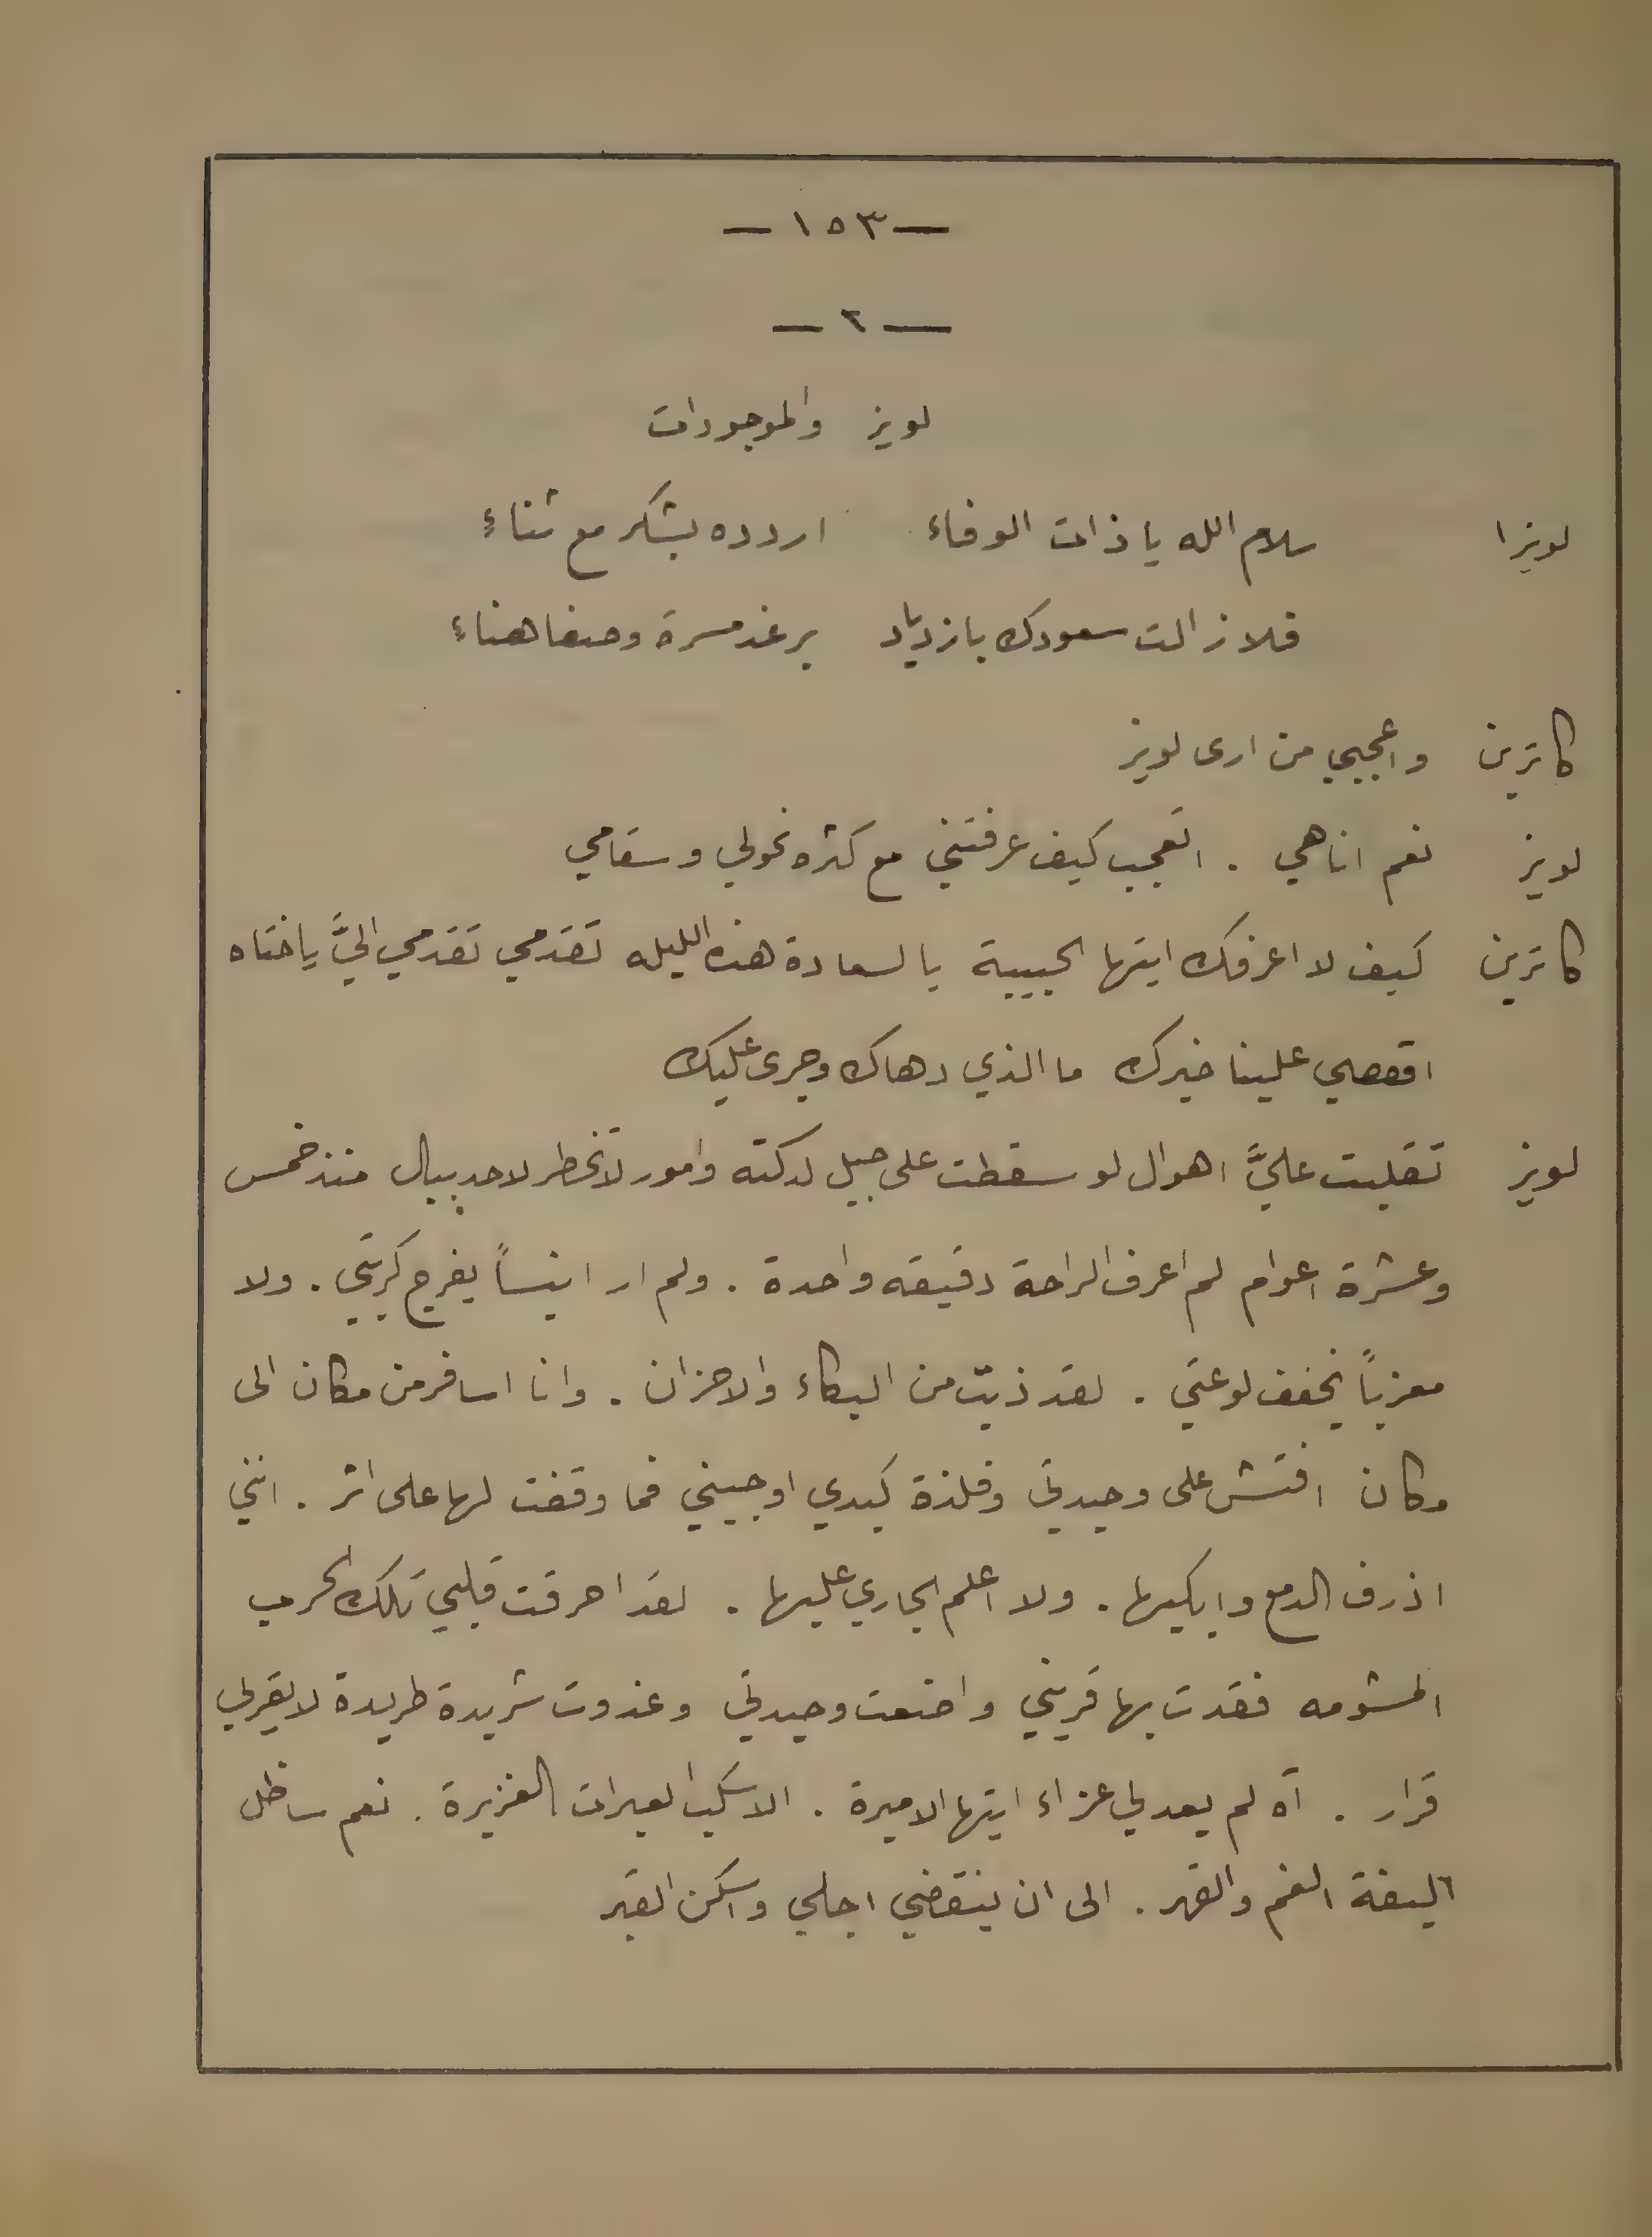 — ١٥٣ —
— ٢ —
لويز والموجودات
لويزا سلام الله يا ذات الوفاء اردده بشكر مع ثناءٍ
فلا زالت سعودك بازدياد برغد مسرة وصفا هناء
كاترين واعجبي من ارى لويز
لويز نعم انا هي . اتعجب كيف عرفتني مع كثره نحولي وسقامي
كاترين كيف لا اعرفك ايتها الحبيبة يا لسعادة هذه الليله تقدمي تقدمي اليَّ يا ختاه
اقصصي علينا خبرك ما الذي دهاك وجرى عليك
لويز تقلبت عليَّ اهوال لو سقطت على جبل لدكته وامور لا تخطر لاحد ببال منذ خمس
وعشرة اعوام لم اعرف الراحة دقيقه واحدة . ولم ار انيساً يفرج كربتي . ولا
معزياً يخفف لوعتي . لقد ذبت من البكاء والاحزان . وانا اسافر من مكان الى
مكان افتش على وحيدتي وفلذة كبدي اوجيني فما وقفت لها على اثر . انني
اذرف الدمع وابكيها . ولا اعلم الجاري عليها . لقد احرقت قلبي تلك الحرب
المشومه فقدت بها قريني واضعت وحيدتي وغدوت شريدة طريدة لا يقر لي
قرار . آه لم يعد لي عزاء ايتها الاميرة . الا سكب العبرات الغزيرة . نعم ساظل
اليفة الغم والقهر . الى ان ينقضي اجلي واسكن القبر